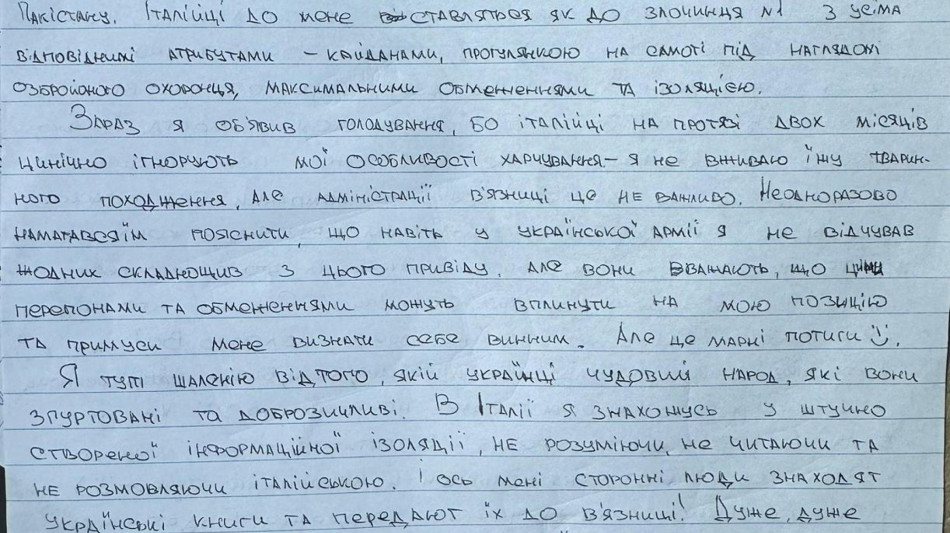 Пакістану. Італійці до мене ставляться як до злочинця №1 з усіма
відповідними атрибутами – кайданами, прогулянкою на самоті під наглядом
озбройоного охоронця, максимальними обмеженнями та ізоляцією.
Зараз я об'явив голодування, бо італійці на протязі двох місяців
цинічно ігнорують мої особливості харчування – я не вживаю їжу тварин-
ного походження, але адміністрації в'язниці це не важливо. Неодноразово
намагався їм пояснити, що навіть у української армії я не відчував
жодних складнощив з цього привіду, але вони вважають, що цими
перепонами та обмеженнями можуть вплинути на мою позицію
та примуси мене визнати себе винним. Але це марні потиги :).
Я тут шаленію від того, якій українці чудовий народ, які вони
згуртовані та доброзичливі! В Італії я знахожусь у штучно
створеної інформаційної ізоляції, не розуміючи, не читаючи та
не розмовляючи італійською. І ось мені сторонні люди знаходят
українські книги та передают їх до в'язниці! Дуже, дуже